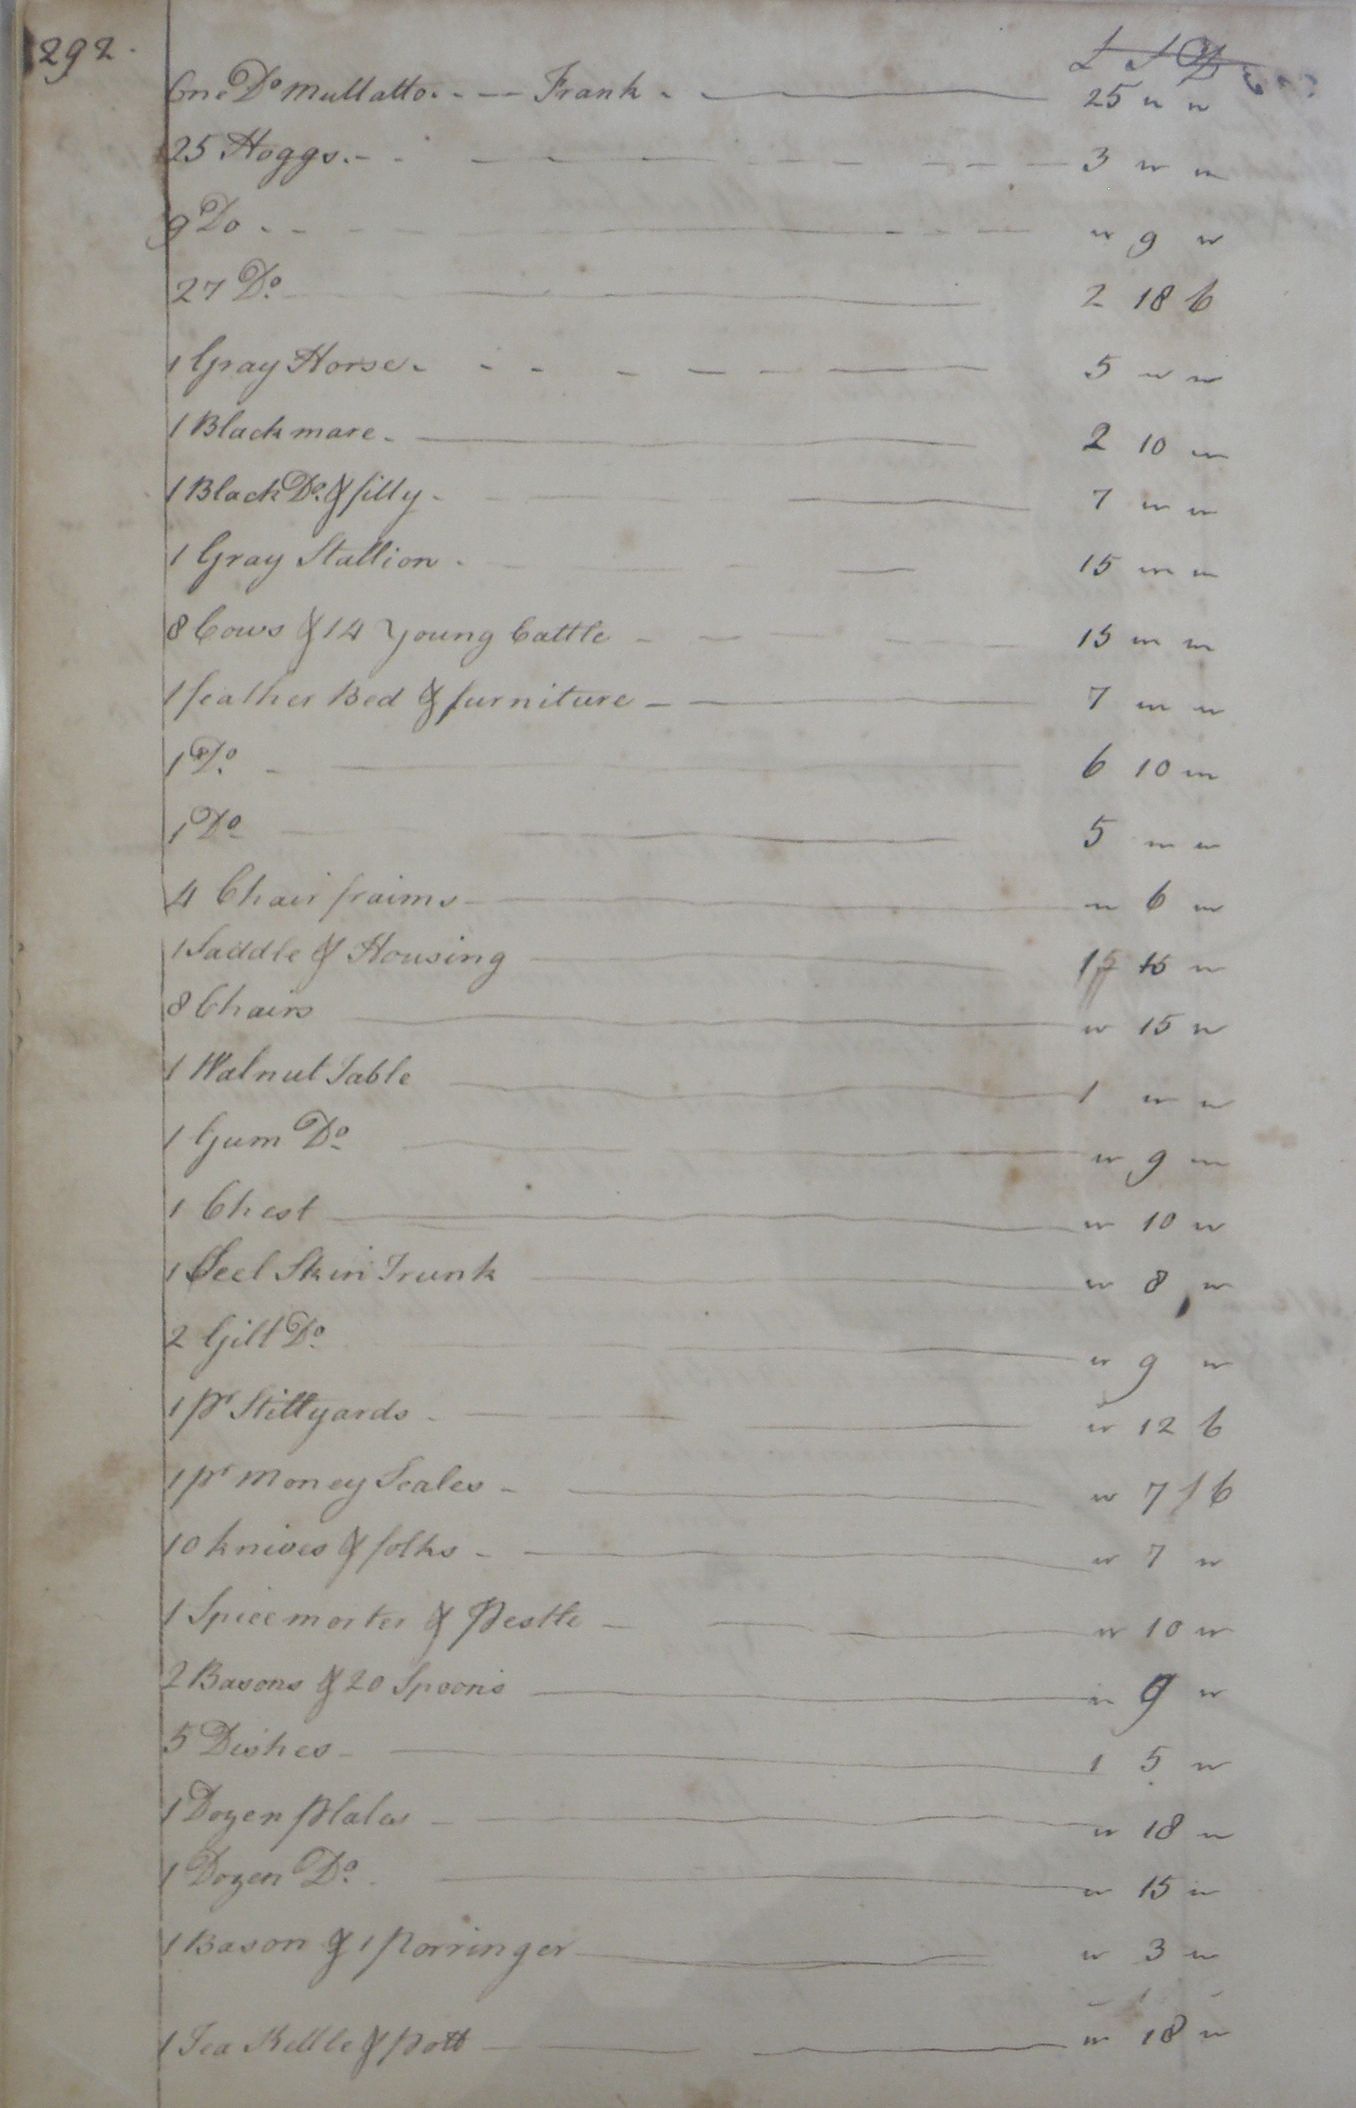 292.
£ S D
One Do Mullatto. - - — Frank - - — 25 " "
25 Hoggs. - - — 3 " "
9 Do - - — " 9 "
27 Do. — 2 18 6
1 Gray Horse. - - — 5 " "
1 Black mare. — 2 10 "
1 Black Do. & filly. — 7 " "
1 Gray Stallion. — 15 " "
8 Cows & 14 Young Cattle — 15 " "
1 feather Bed & furniture — 7 " "
1 Do. — 6 10 "
1 Do — 5 " "
4 Chair fraims — " 6 "
1 Saddle & Housing — 15 "
8 Chairs — " 15 "
1 Walnut Table — 1 " "
1 Gum Do — " 9 "
1 Chest — " 10 "
1 Seel Skin Trunk — " 8 "
2 Gilt Do. — " 9 "
1 pr Stillyards — " 12 6
1 pr Money Scales — " 7 6
10 knives & folks — " 7 "
1 Spice morter & Pestle — " 10 "
2 Basons & 20 Spoons — " 9 "
5 Dishes — 1 5 "
1 Dozen Plates — " 18 "
1 Dozen Do. — " 15 "
1 Bason & 1 Porringer — " 3 "
1 Tea Kettle & Pott — " 18 "